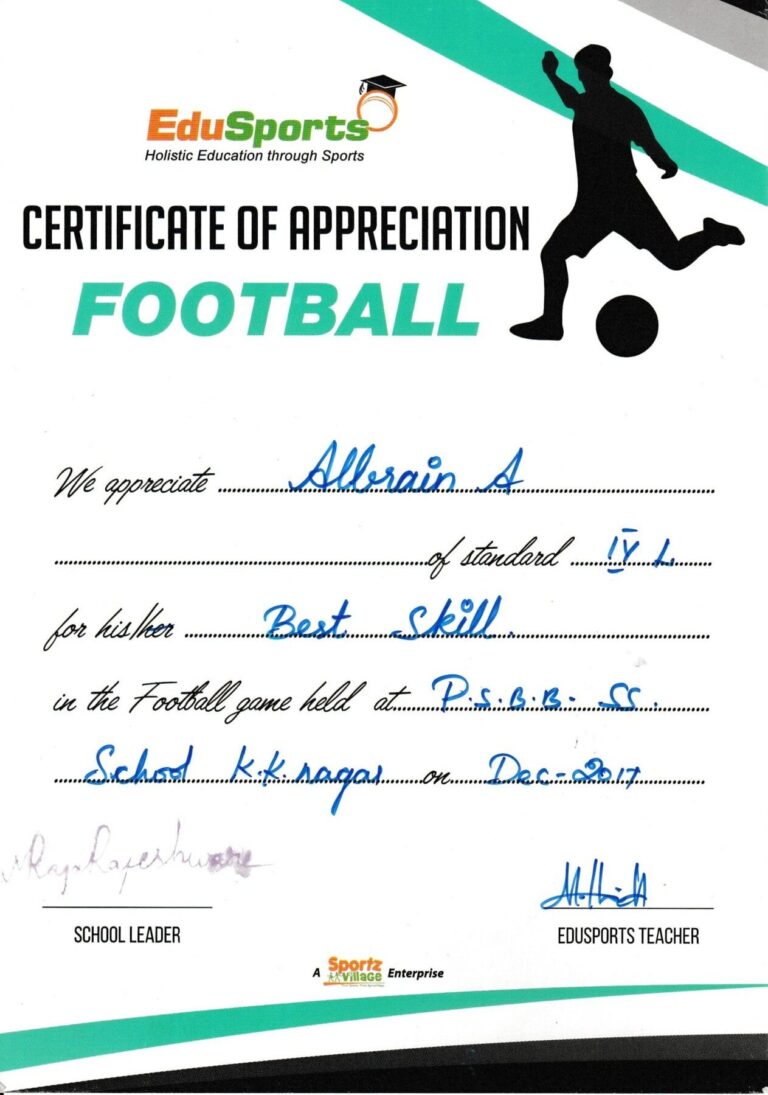 EduSports
Holistic Education through Sports
CERTIFICATE OF APPRECIATION
FOOTBALL
We appreciate Albrain A
of standard IV L.
for his/her Best Skill.
in the Football game held at P.S.B.B. SS.
School K.K. nagar on Dec-2017
SCHOOL LEADER
EDUSPORTS TEACHER
A Sportz Village Enterprise